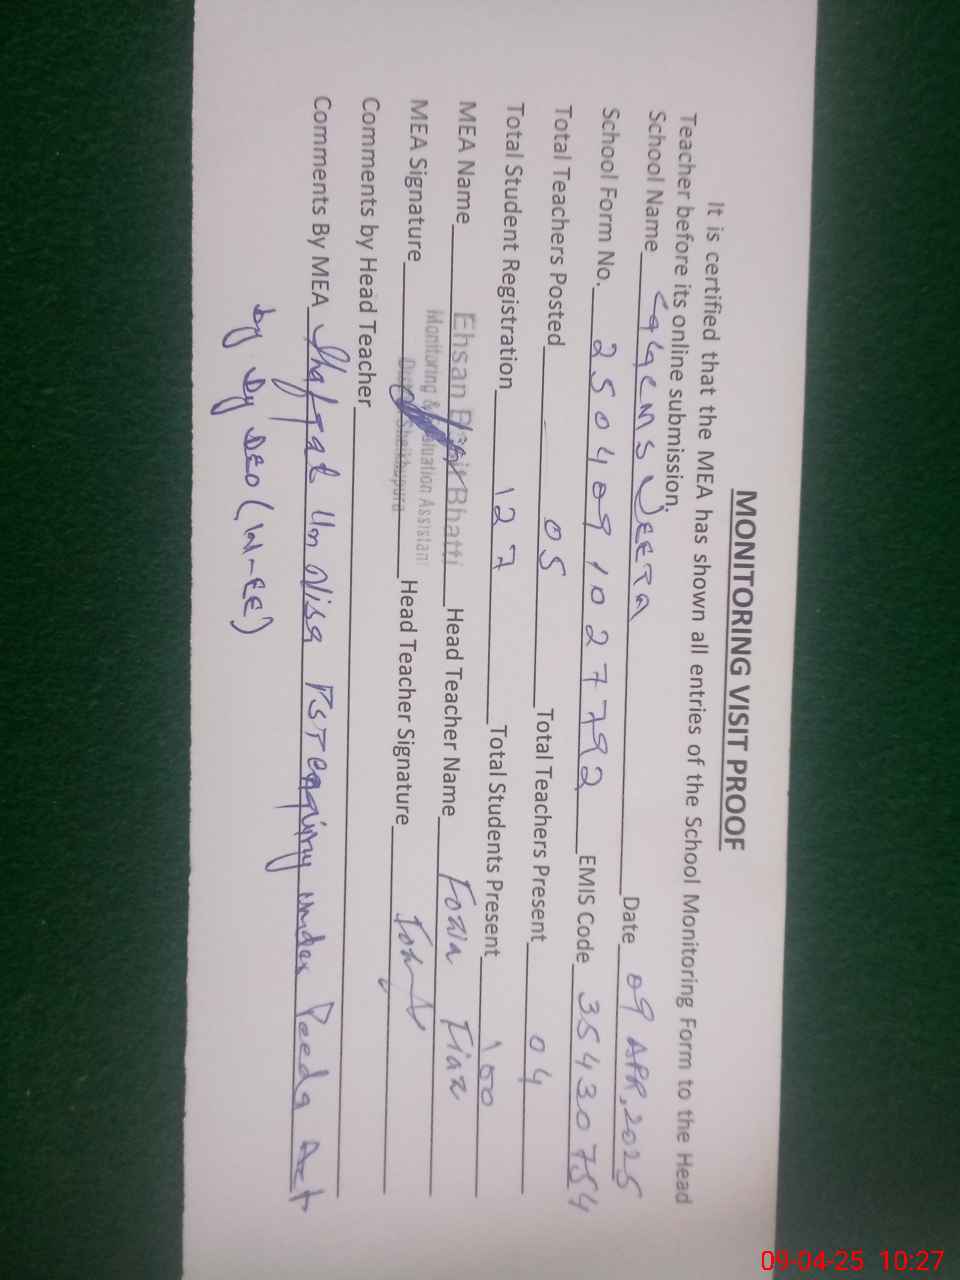 MONITORING VISIT PROOF
It is certified that the MEA has shown all entries of the School Monitoring Form to the Head
Teacher before its online submission.
School Name Date 09 APR, 2025
School Form No. 2504091027792 EMIS Code 35430754
Total Teachers Posted 05 Total Teachers Present 04
Total Student Registration 127 Total Students Present 100
MEA Name Ehsan Bhatti Head Teacher Name Fozia
Monitoring & Evaluation Assistant
MEA Signature Sheikhupura Head Teacher Signature
Comments by Head Teacher
Comments By MEA Shafqat Un Nisa PST enquiry under Peeda Act
by Dy DEO (W-EE)
09-04-25 10:27